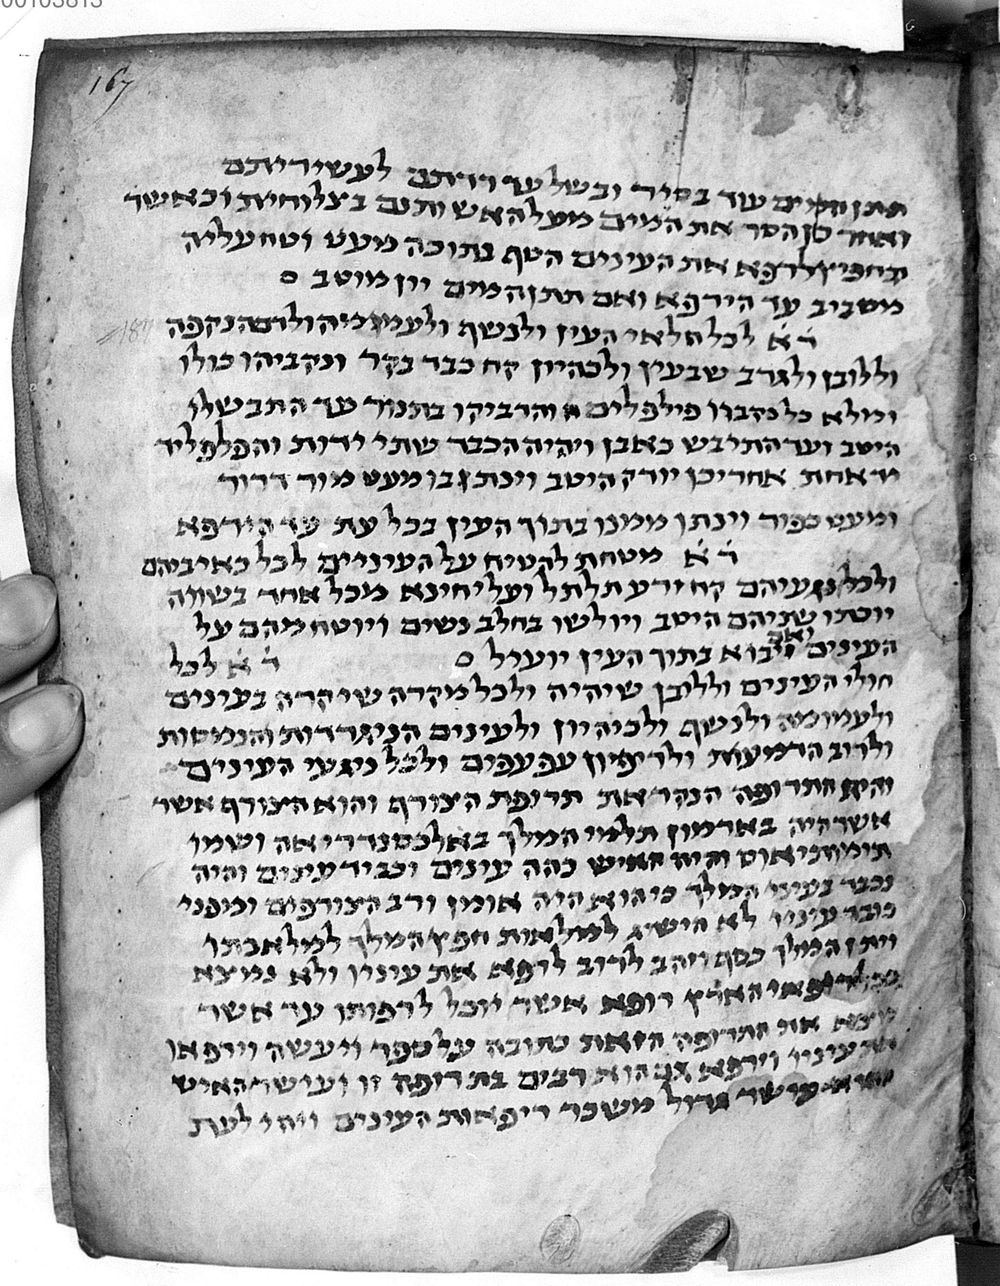 00103813
167
תתן המים עוד בסיר ובשל עד רדתם לעשיריתם
ואחר כן הסר את המים מעל האש ותנם בצלוחית וכאשר
תחפיץ לרפא את העינים הטף נתוכה מעט וטח עליה
מסביב עד הירפא ואם תתן המים יין מוטב ס
ר׳א׳ לכל חלאי העין ולנשף ולעמומיה ולדם הנקפה
וללובן ולגרב שבעין ולכהיון קח כבד בקר ונקביהו כולו
ומלא כל נקבריו פילפלים והדביקו בתנור עד התבשלו
היטב ועד התיבש כאבן ויהיה הכבד שתי ידות והפלפליר
יד אחת אחרי כן יודק היטב וינתן בו מעט מור דרור
ומעט כפור וינתן ממנו בתוך העין בכל עת עד הירפא
ר׳א׳ משחת להטיח על העיניים לכל כאיביהם
ולכל נגעיהם קח ירע תלתל ועלי חינא מכל אחד בשווה
יוכתו שניהם היטב ויולשו בחלב נשים ויוטח מהם על
העינים ואם יבוא בתוך העין יועיל ס ר׳א׳ לכל
חולי העינים וללובן שיהיה ולכל מקרה שיקרה בעינים
ולעמומה ולנשף ולכיהיון ולעינים הניגרדות והנמסות
ולרוב הדמעות ולריפיון עפעפים ולכל ניגעי העינים
והיא התרופה הנקראת תרופת הצורף והוא הצורף אשר
אשר היה בארמון תלמי המלך באלכסנדריאה ושמו
והיה האיש כהה עינים וכביד עינים והיה
נכבד בעיני המלך כי הוא היה אומן ורב הצורפים ומפני
כובד עיניו לא הישיג למלאות חפץ המלך למלאכתו
ויתן המלך כסף וזהב לרוב לרפא את עיניו ולא נמצא
בכל רופאי הארץ רופא אשר יוכל לרפותו עד אשר
מצא את התרופה הזאת כתובה על ספר ויעשה וירפאו
את עיניו וירפא גם הוא רבים בתרופה זו ועושר האיש
עושר גדול משכר ריפאות העינים ויהי לעת